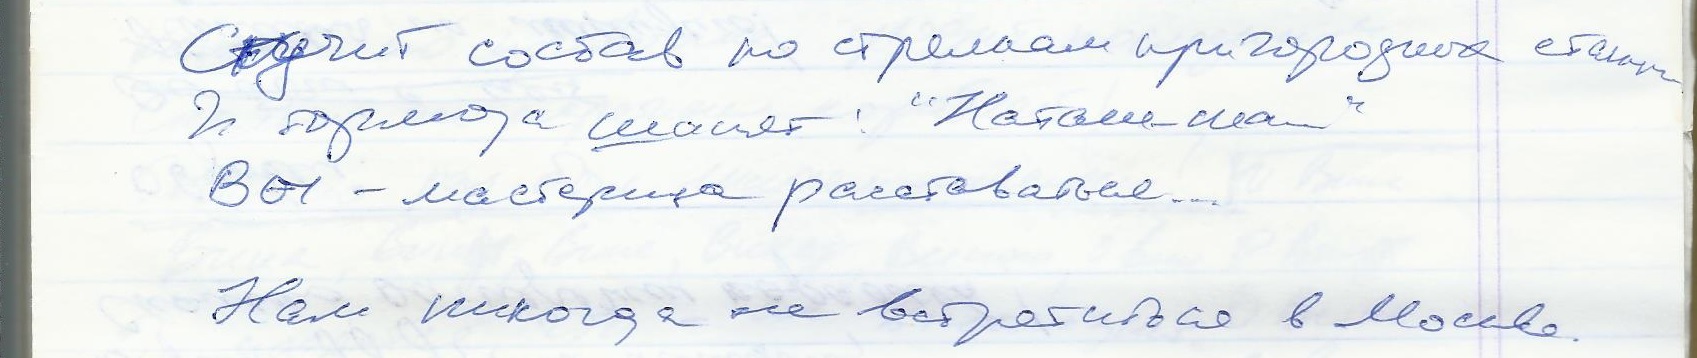 Стучит состав по стрелкам пригородных станций
И тормоза шипят: "Наташ-ша"
Вы - мастерица расставаться...
Нам никогда не встретиться в Москве.